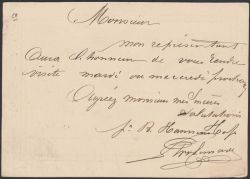 Monsieur
mon représentant
Aura l'honneur de vous rendre
visite mardi ou mercredi prochain
Agréez monsieur mes sincères
salutations